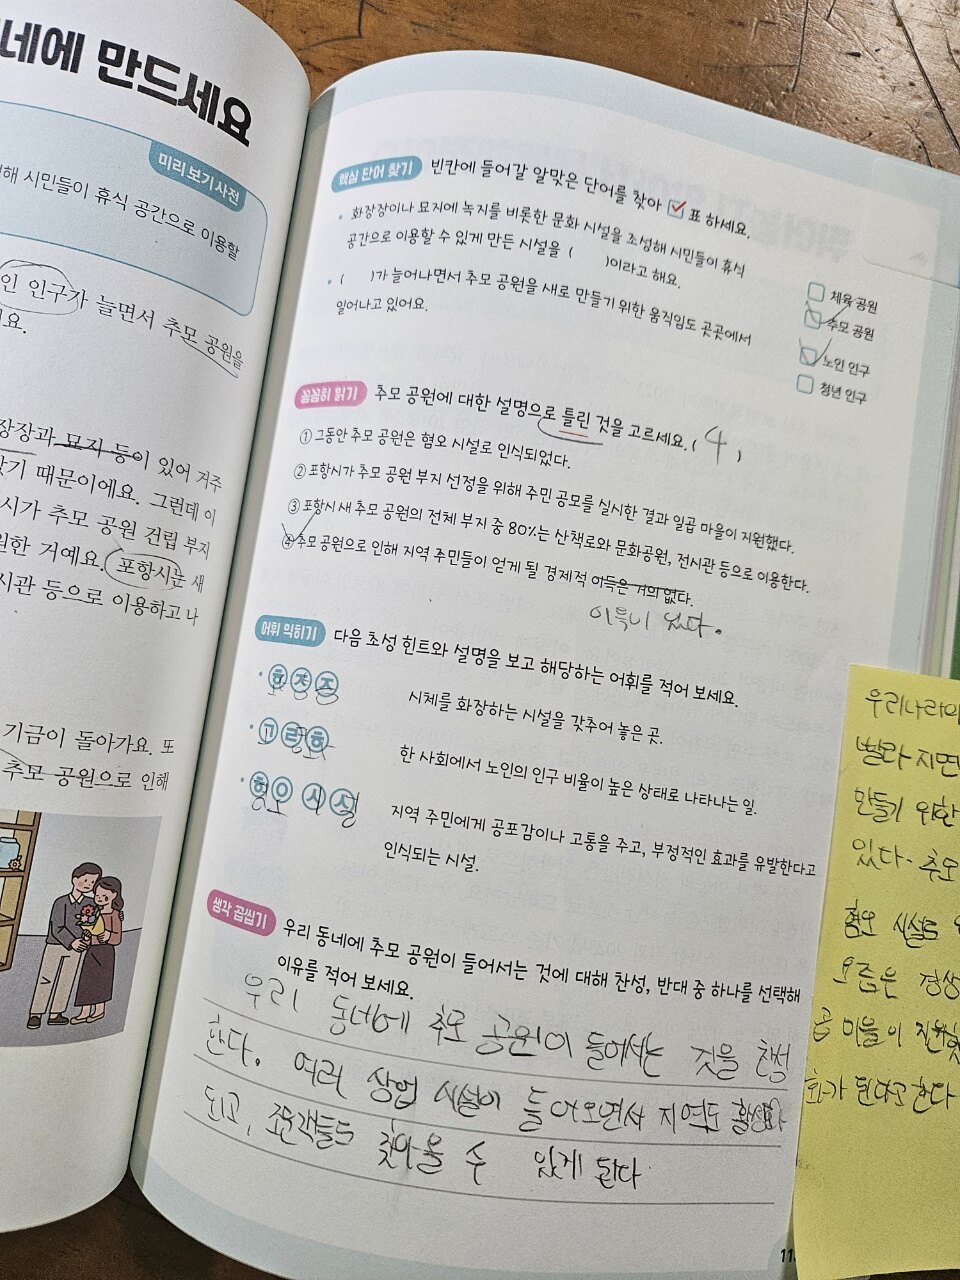 네에 만드세요
미리 보기 사전
해 시민들이 휴식 공간으로 이용할
인 인구가 늘면서 추모 공원을
요.
장장과 묘지 등이 있어 거주
았기 때문이에요. 그런데 이
시가 추모 공원 건립 부지
원한 거예요. 포항시는 새
시관 등으로 이용하고 나
기금이 돌아가요. 또
추모 공원으로 인해
핵심 단어 찾기 빈칸에 들어갈 알맞은 단어를 찾아 ☑ 표 하세요.
• 화장장이나 묘지에 녹지를 비롯한 문화 시설을 조성해 시민들이 휴식
공간으로 이용할 수 있게 만든 시설을 ( )이라고 해요.
• ( )가 늘어나면서 추모 공원을 새로 만들기 위한 움직임도 곳곳에서
일어나고 있어요.
체육 공원
추모 공원
노인 인구
청년 인구
꼼꼼히 읽기 추모 공원에 대한 설명으로 틀린 것을 고르세요. ( 4 )
① 그동안 추모 공원은 혐오 시설로 인식되었다.
② 포항시가 추모 공원 부지 선정을 위해 주민 공모를 실시한 결과 일곱 마을이 지원했다.
③ 포항시 새 추모 공원의 전체 부지 중 80%는 산책로와 문화공원, 전시관 등으로 이용한다.
④ 추모 공원으로 인해 지역 주민들이 얻게 될 경제적 이득은 거의 없다.
이득이 있다.
어휘 익히기 다음 초성 힌트와 설명을 보고 해당하는 어휘를 적어 보세요.
• ㅎ ㅈ ㅈ 시체를 화장하는 시설을 갖추어 놓은 곳.
• ㄱ ㄹ ㅎ 한 사회에서 노인의 인구 비율이 높은 상태로 나타나는 일.
• ㅎ ㅇ ㅅ ㅅ 지역 주민에게 공포감이나 고통을 주고, 부정적인 효과를 유발한다고
혐오 시설
인식되는 시설.
생각 곱씹기 우리 동네에 추모 공원이 들어서는 것에 대해 찬성, 반대 중 하나를 선택해
이유를 적어 보세요.
우리 동네에 추모 공원이 들어서는 것을 찬성
한다. 여러 상업 시설이 들어오면서 지역도 활성화
되고, 조문객들도 찾아올 수 있게 된다
우리나라의
빨라지면
만들기 위한
있다. 추모
혐오 시설로
요즘은 경상
곱 마을이 지원했
화가 된다고 한다